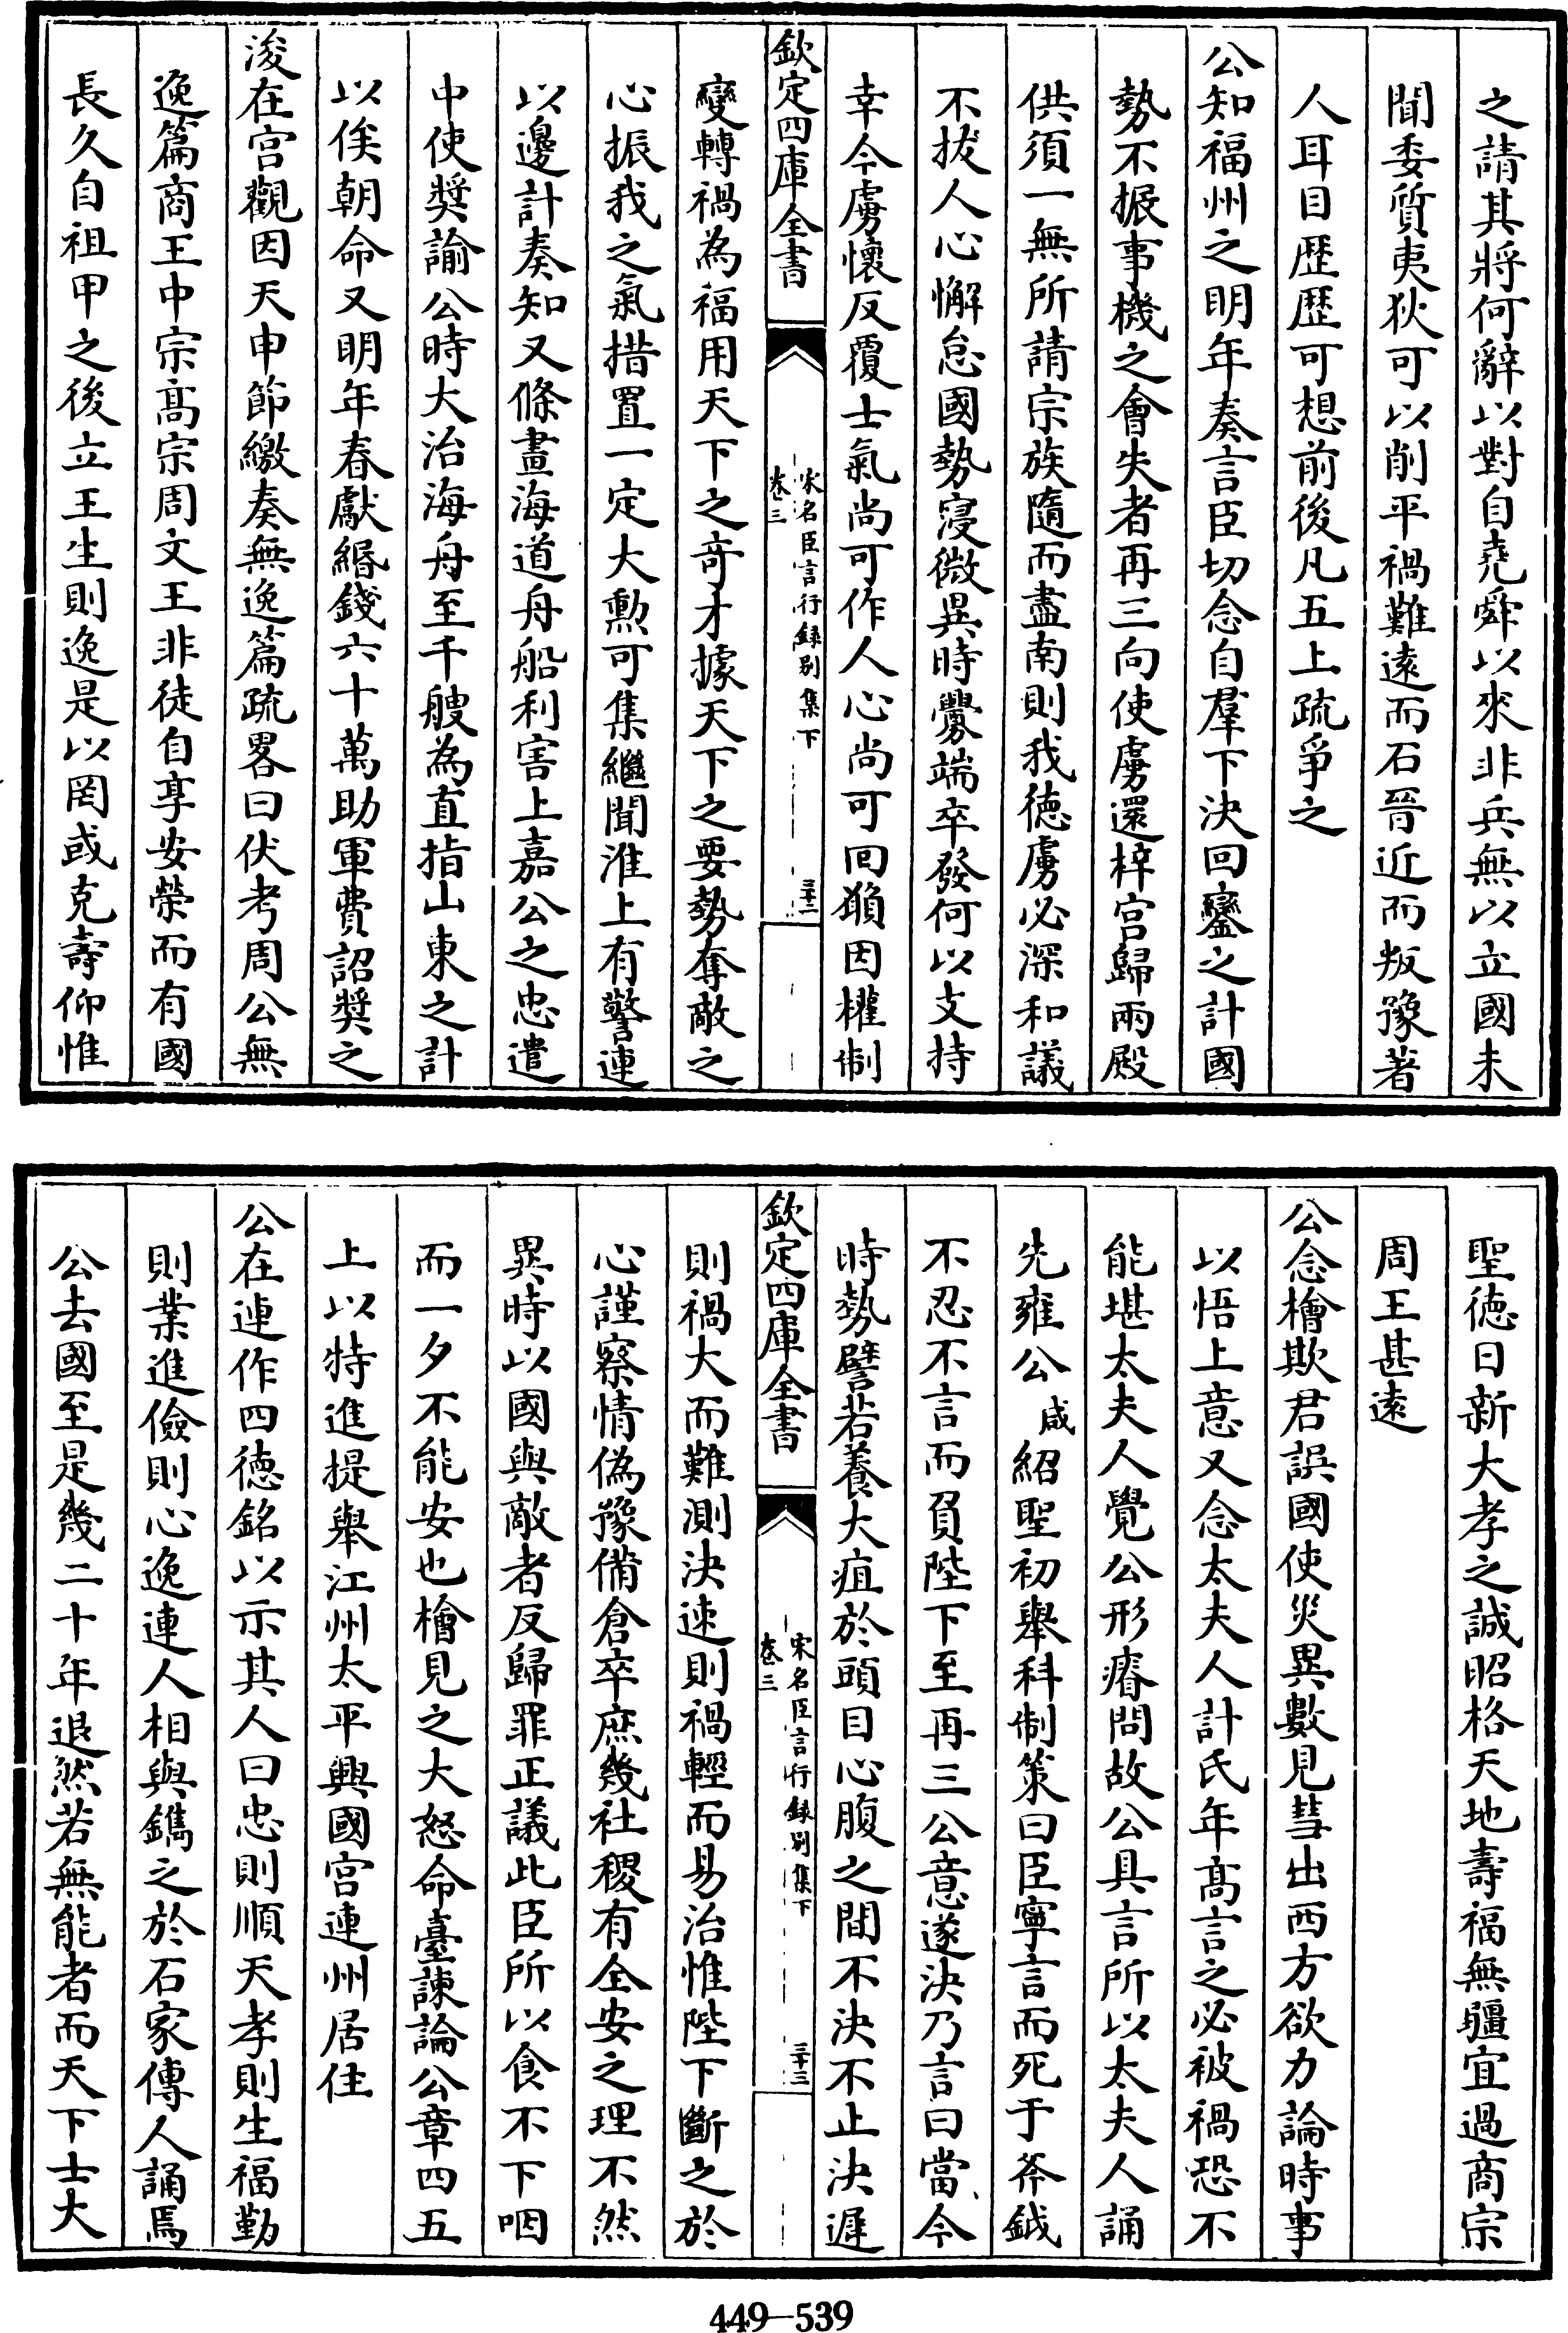 之請其將何辭以對自堯舜以來非兵無以立國未
聞委質夷狄可以削平禍難遠而石晉近而叛豫著
人耳目歴歴可想前後凡五上疏爭之
公知福州之明年奏言臣切念自羣下決回鑾之計國
勢不振事機之會失者再三向使虜還梓宫歸兩殿
供須一無所請宗族隨而盡南則我徳虜必深和議
不拔人心懈怠國勢寖微異時釁端卒發何以支持
幸今虜懷反覆士氣尚可作人心尚可回願因權制
欽定四庫全書
宋名臣言行録别集下
卷三
三十二
變轉禍為福用天下之竒才據天下之要勢奪敵之
心振我之氣措置一定大勲可集繼聞淮上有警連
以邊計奏知又條畫海道舟船利害上嘉公之忠遣
中使奬諭公時大治海舟至千艘為直指山東之計
以俟朝命又明年春獻緡錢六十萬助軍費詔奬之
浚在宫觀因天申節繳奏無逸篇疏畧曰伏考周公無
逸篇商王中宗髙宗周文王非徒自享安榮而有國
長久自祖甲之後立王生則逸是以罔或克壽仰惟
聖徳日新大孝之誠昭格天地壽福無疆宜過商宗
周王甚遠
公念檜欺君誤國使災異數見彗出西方欲力論時事
以悟上意又念太夫人計氏年髙言之必被禍恐不
能堪太夫人覺公形瘠問故公具言所以太夫人誦
先雍公咸紹聖初舉科制策曰臣寧言而死于斧鉞
不忍不言而負陛下至再三公意遂決乃言曰當今
時勢譬若養大疽於頭目心腹之間不決不止決遲
欽定四庫全書
宋名臣言行録别集下
卷三
三十三
則禍大而難測決速則禍輕而易治惟陛下斷之於
心謹察情偽豫備倉卒庶幾社稷有全安之理不然
異時以國與敵者反歸罪正議此臣所以食不下咽
而一夕不能安也檜見之大怒命臺諫論公章四五
上以特進提舉江州太平興國宫連州居住
公在連作四徳銘以示其人曰忠則順天孝則生福勤
則業進儉則心逸連人相與鐫之於石家傳人誦焉
公去國至是幾二十年退然若無能者而天下士大
449-539